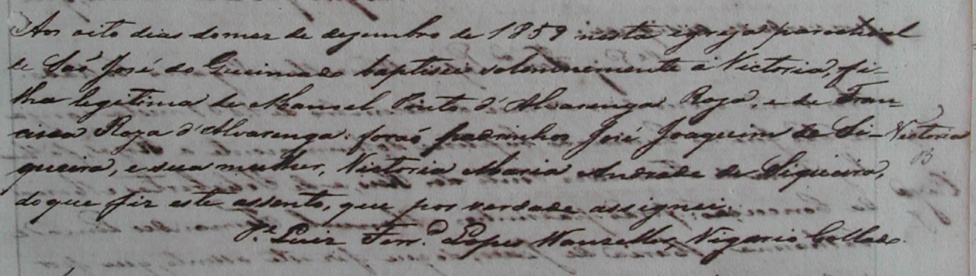 Aos oito dias do mez de dezembro de 1859 nesta igreja parochial
de Saõ José do Queimado baptisei solemnemente a Victoria, fi-
lha legitima de Manoel Pinto d'Alvarenga Roza, e de Fran-
cisca Roza d'Alvarenga. foraõ padrinhos José Joaquim de Si-
queira, e sua mulher, Victoria Maria Andrade de Siqueira,
do que fiz este assento, que por verdade assignei.
Pe. Luiz Lopes Vigario Collado.
Victoria